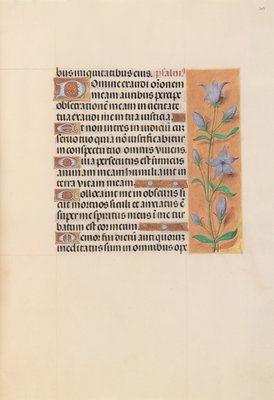 bus iniquitatibus eius. psalm⁹
Domine exaudi orōnem
meam auribus percipe
obsecrationē meam in ueritate
tua exaudi me in tua iusticia.
Et non intres in iudiciū cū
seruo tuo quia nō iustificabitur
in conspectu tuo omnis uiuens.
Quia persecutus est inimicus
animam meam humiliauit in
terra uitam meam.
Collocauit me in obscuris si
cut mortuos seculi et anxiatus ē
super me spiritus meus i me tur
batum est cor meum.
Memor fui dierū antiquorum
meditatus sum in omnibus ope